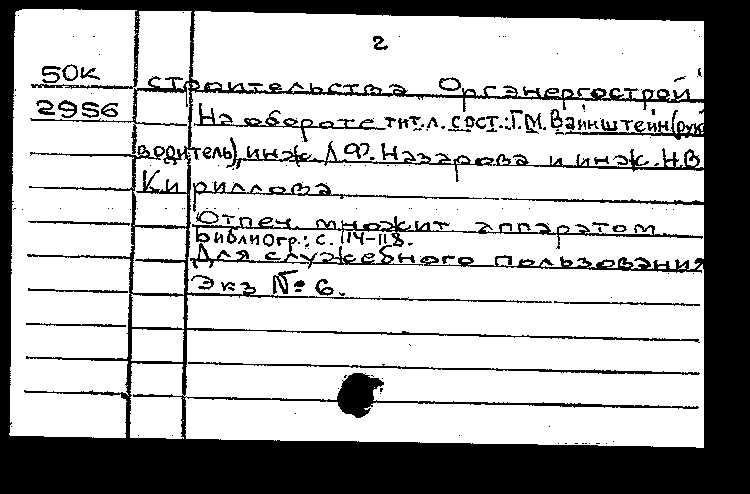 2
50к строительства Оргэнергострой
2956 На обороте тит.л. сост.: Г.М. Вайнштейн (рук
водитель), инж. Л.Ф. Назарова и инж. Н.В
Кириллова.
Отпеч. множит аппаратом
Библиогр.: с. 114-118.
Для служебного пользования
Экз № 6.